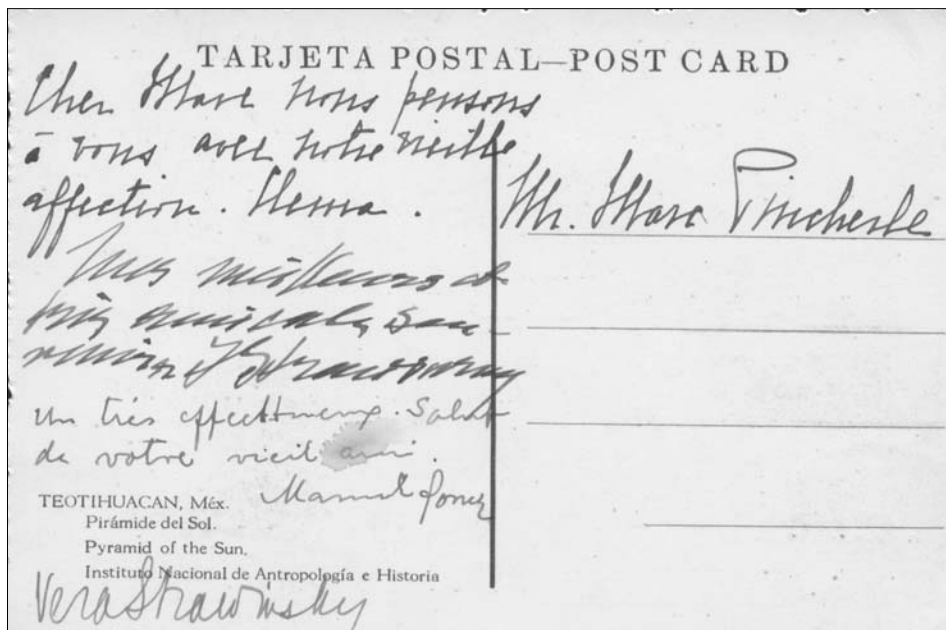 TARJETA POSTAL—POST CARD
Cher Marc nous pensons
à vous avec notre vieille
affection. Clema.
Mes meilleurs et
très amicaux sou-
venirs IStrawinsky
un très affecttueux salut
de votre vieil ami.
Manuel Ponce
Mr. Marc Pincherle
TEOTIHUACAN, Méx.
Pirámide del Sol.
Pyramid of the Sun.
Instituto Nacional de Antropología e Historia
Vera Strawinsky